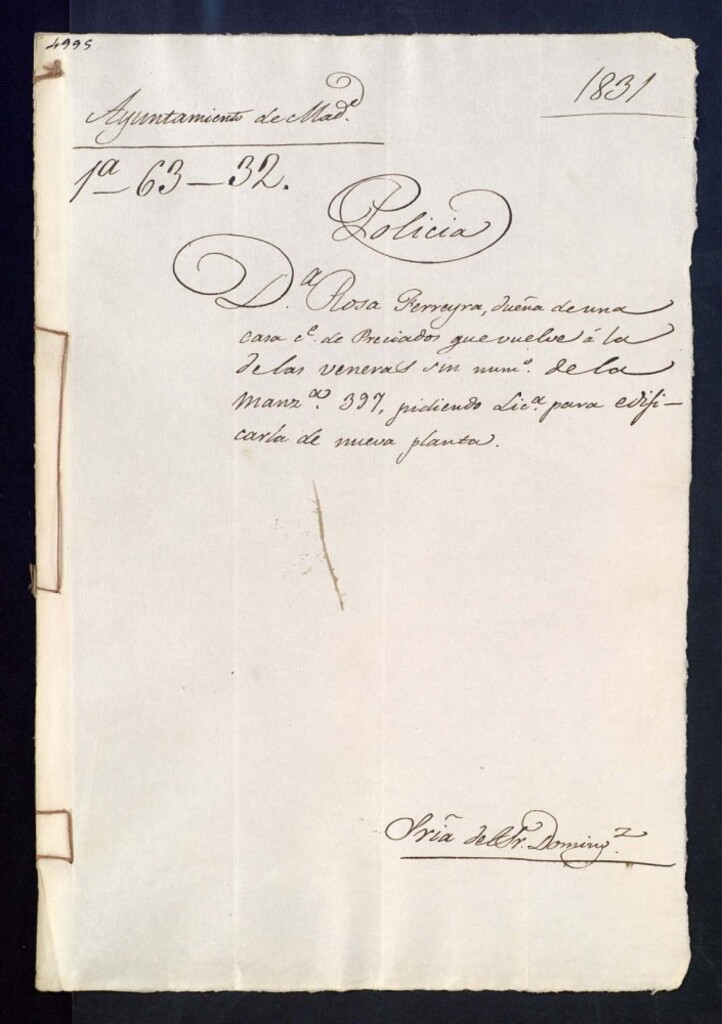 4995
1831
Ayuntamiento de Mad.d
1ª-63-32.
Policia
D.ª Rosa Ferreyra, dueña de una
casa c.e de Preciados que vuelve á la
de las veneras sin num.o de la
Manz.ª 397, pidiendo Lic.ª para edifi-
carla de nueva planta.
Sriã del Sr. Doming.z